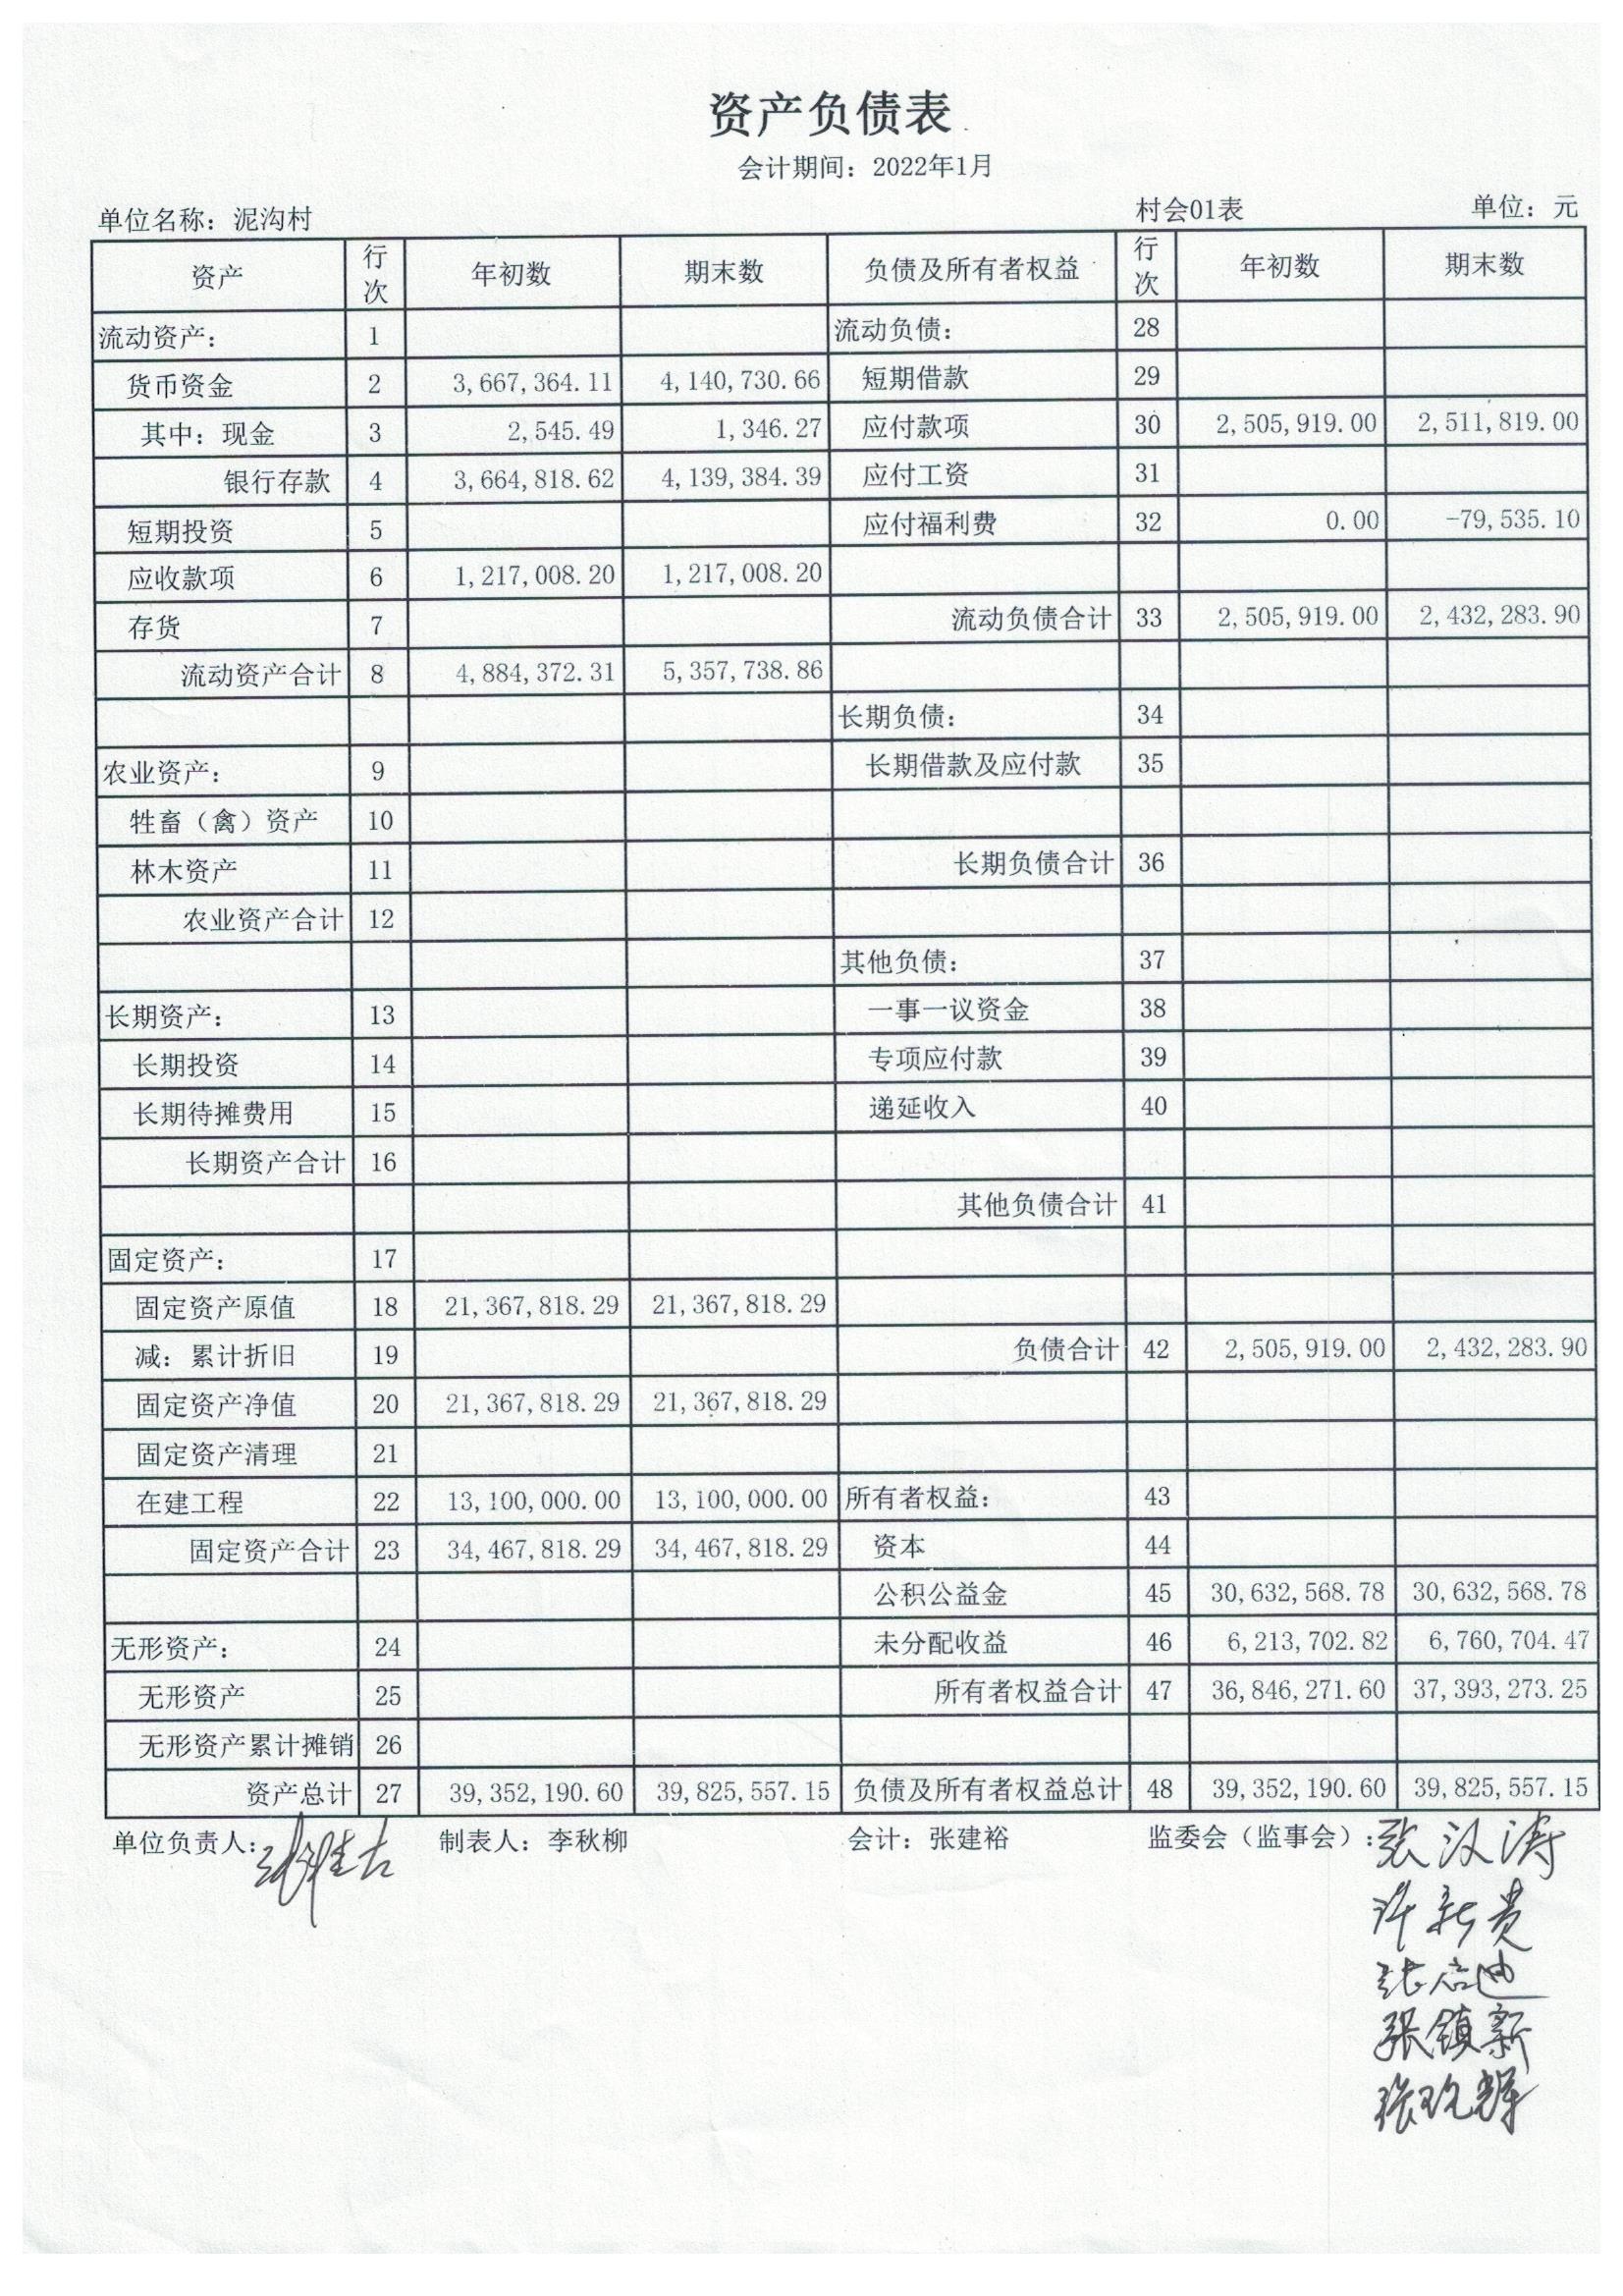 资产负债表
会计期间：2022年1月
单位名称：泥沟村 村会01表 单位：元
资产 行次 年初数 期末数 负债及所有者权益 行次 年初数 期末数
流动资产： 1 流动负债： 28
货币资金 2 3,667,364.11 4,140,730.66 短期借款 29
其中：现金 3 2,545.49 1,346.27 应付款项 30 2,505,919.00 2,511,819.00
银行存款 4 3,664,818.62 4,139,384.39 应付工资 31
短期投资 5 应付福利费 32 0.00 -79,535.10
应收款项 6 1,217,008.20 1,217,008.20
存货 7 流动负债合计 33 2,505,919.00 2,432,283.90
流动资产合计 8 4,884,372.31 5,357,738.86
长期负债： 34
农业资产： 9 长期借款及应付款 35
牲畜（禽）资产 10
林木资产 11 长期负债合计 36
农业资产合计 12
其他负债： 37
长期资产： 13 一事一议资金 38
长期投资 14 专项应付款 39
长期待摊费用 15 递延收入 40
长期资产合计 16
其他负债合计 41
固定资产： 17
固定资产原值 18 21,367,818.29 21,367,818.29
减：累计折旧 19 负债合计 42 2,505,919.00 2,432,283.90
固定资产净值 20 21,367,818.29 21,367,818.29
固定资产清理 21
在建工程 22 13,100,000.00 13,100,000.00 所有者权益： 43
固定资产合计 23 34,467,818.29 34,467,818.29 资本 44
公积公益金 45 30,632,568.78 30,632,568.78
无形资产： 24 未分配收益 46 6,213,702.82 6,760,704.47
无形资产 25 所有者权益合计 47 36,846,271.60 37,393,273.25
无形资产累计摊销 26
资产总计 27 39,352,190.60 39,825,557.15 负债及所有者权益总计 48 39,352,190.60 39,825,557.15
单位负责人： 制表人：李秋柳 会计：张建裕 监委会（监事会）：张汉涛
许新贵
张
张镇新
张 辉